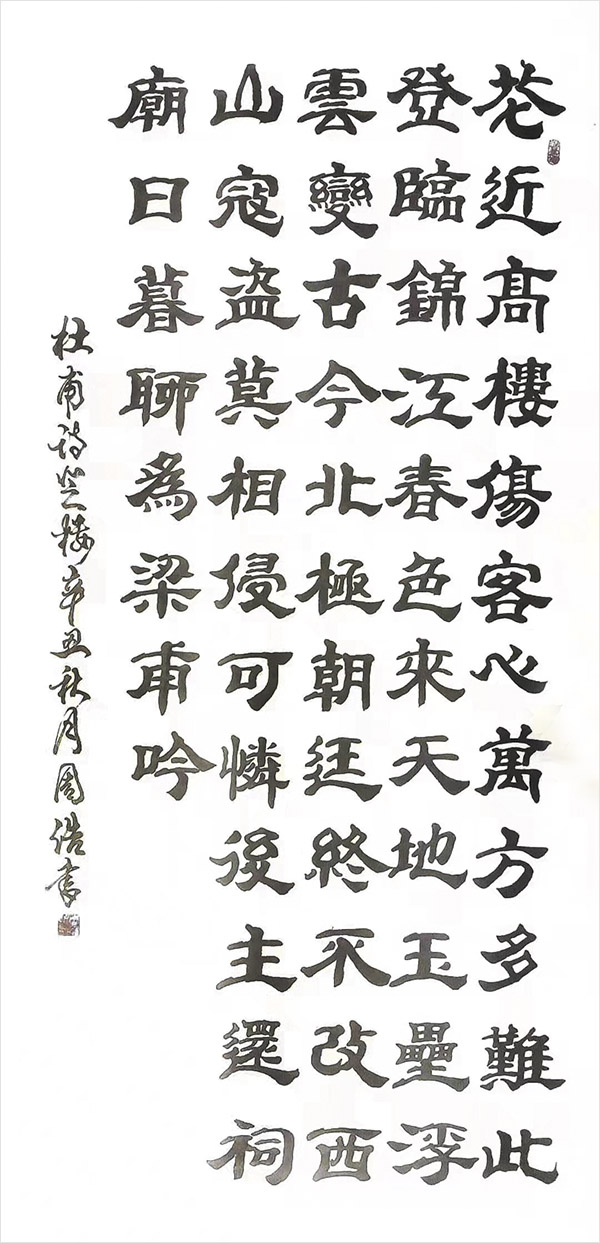 花近高樓傷客心萬方多難此
登臨錦江春色來天地玉壘浮
雲變古今北極朝廷終不改西
山寇盜莫相侵可憐後主還祠
廟日暮聊為梁甫吟
杜甫詩登樓辛丑秋月周浩書